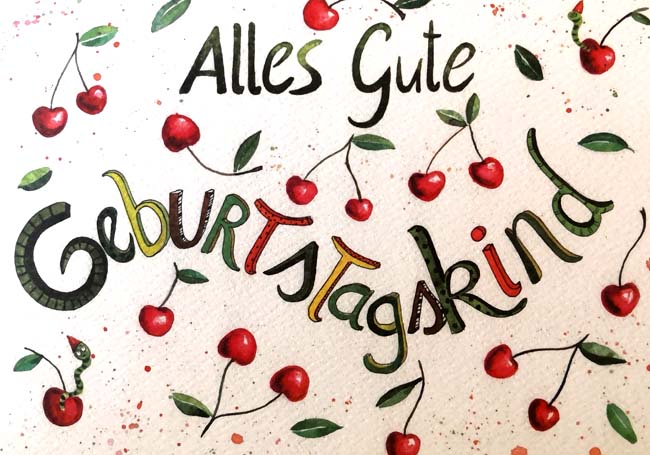 Alles Gute
GebURTsTagskind